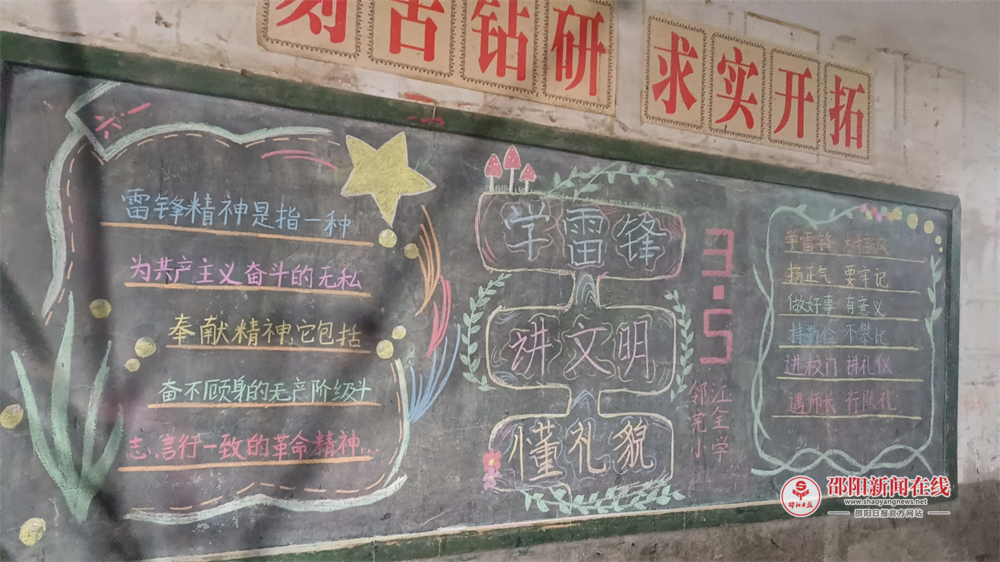 刻苦钻研
求实开拓
六.一
雷锋精神是指一种
为共产主义奋斗的无私
奉献精神,它包括
奋不顾身的无产阶级斗
志.言行一致的革命精神...
学雷锋
讲文明
懂礼貌
3.5
江全学
邻完小
学雷锋 树新风
扬正气 要牢记
做好事 有意义
持勤俭 不攀比
进校门 讲礼仪
遇师长 行队礼
邵阳新闻在线
www.shaoyangnews.net
邵阳日报官方网站
邵阳日报